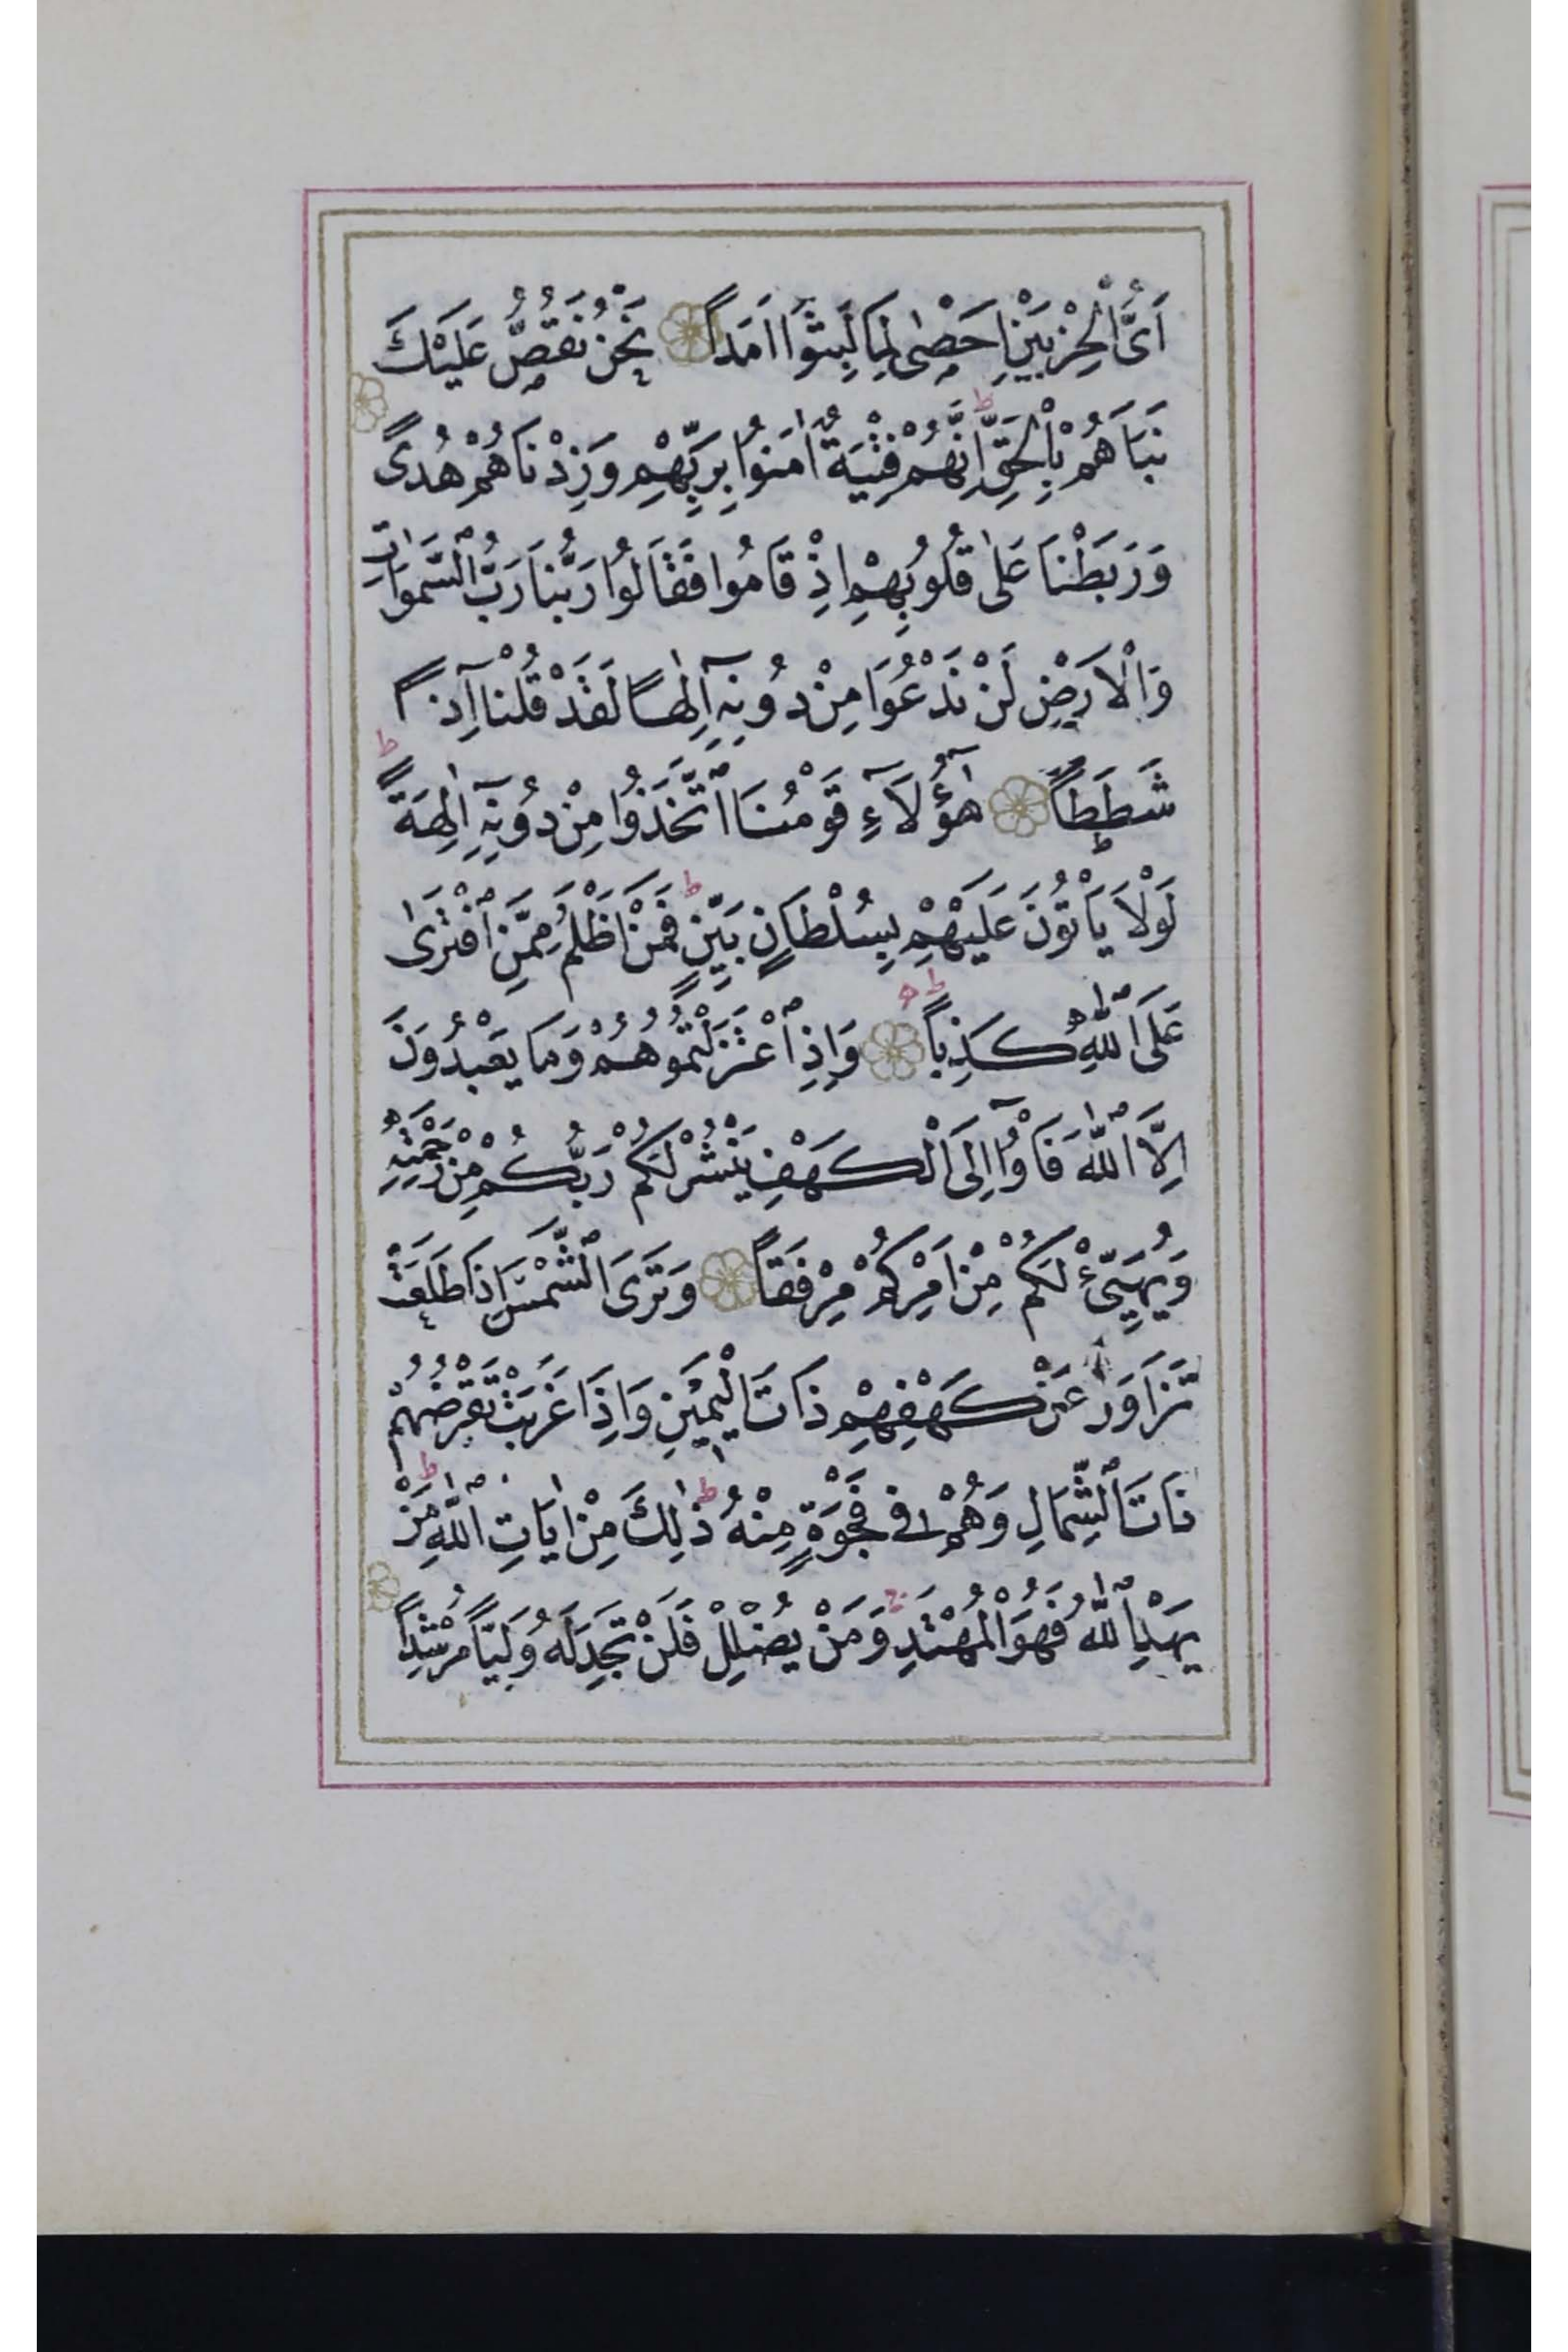 اَىُّ الْحِزْبَيْنِ اَحْصٰى لِمَا لَبِثُٓوا اَمَداً نَحْنُ نَقُصُّ عَلَيْكَ
نَبَاَهُمْ بِالْحَقِّ اِنَّهُمْ فِتْيَةٌ اٰمَنُوا بِرَبِّهِمْ وَزِدْنَاهُمْ هُدًى
وَرَبَطْنَا عَلٰى قُلُوبِهِمْ اِذْ قَامُوا فَقَالُوا رَبُّنَا رَبُّ السَّمٰوَاتِ
وَالْاَرْضِ لَنْ نَدْعُوَا مِنْ دُونِهِٓ اِلٰهاً لَقَدْ قُلْنَٓا اِذاً
شَطَطاً هٰٓؤُلَٓاءِ قَوْمُنَا اتَّخَذُوا مِنْ دُونِهِٓ اٰلِهَةً ط
لَوْلَا يَاْتُونَ عَلَيْهِمْ بِسُلْطَانٍ بَيِّنٍ ط فَمَنْ اَظْلَمُ مِمَّنِ افْتَرٰى
عَلَى اللّٰهِ كَذِباً ط وَاِذِ اعْتَزَلْتُمُوهُمْ وَمَا يَعْبُدُونَ
اِلَّا اللّٰهَ فَاْوُٓا اِلَى الْكَهْفِ يَنْشُرْ لَكُمْ رَبُّكُمْ مِنْ رَحْمَتِهِ
وَيُهَيِّئْ لَكُمْ مِنْ اَمْرِكُمْ مِرْفَقاً وَتَرَى الشَّمْسَ اِذَا طَلَعَتْ
تَزَاوَرُ عَنْ كَهْفِهِمْ ذَاتَ الْيَمِينِ وَاِذَا غَرَبَتْ تَقْرِضُهُمْ
ذَاتَ الشِّمَالِ وَهُمْ فِى فَجْوَةٍ مِنْهُ ط ذٰلِكَ مِنْ اٰيَاتِ اللّٰهِ ط مَنْ
يَهْدِ اللّٰهُ فَهُوَ الْمُهْتَدِ وَمَنْ يُضْلِلْ فَلَنْ تَجِدَ لَهُ وَلِيًّا مُرْشِداً